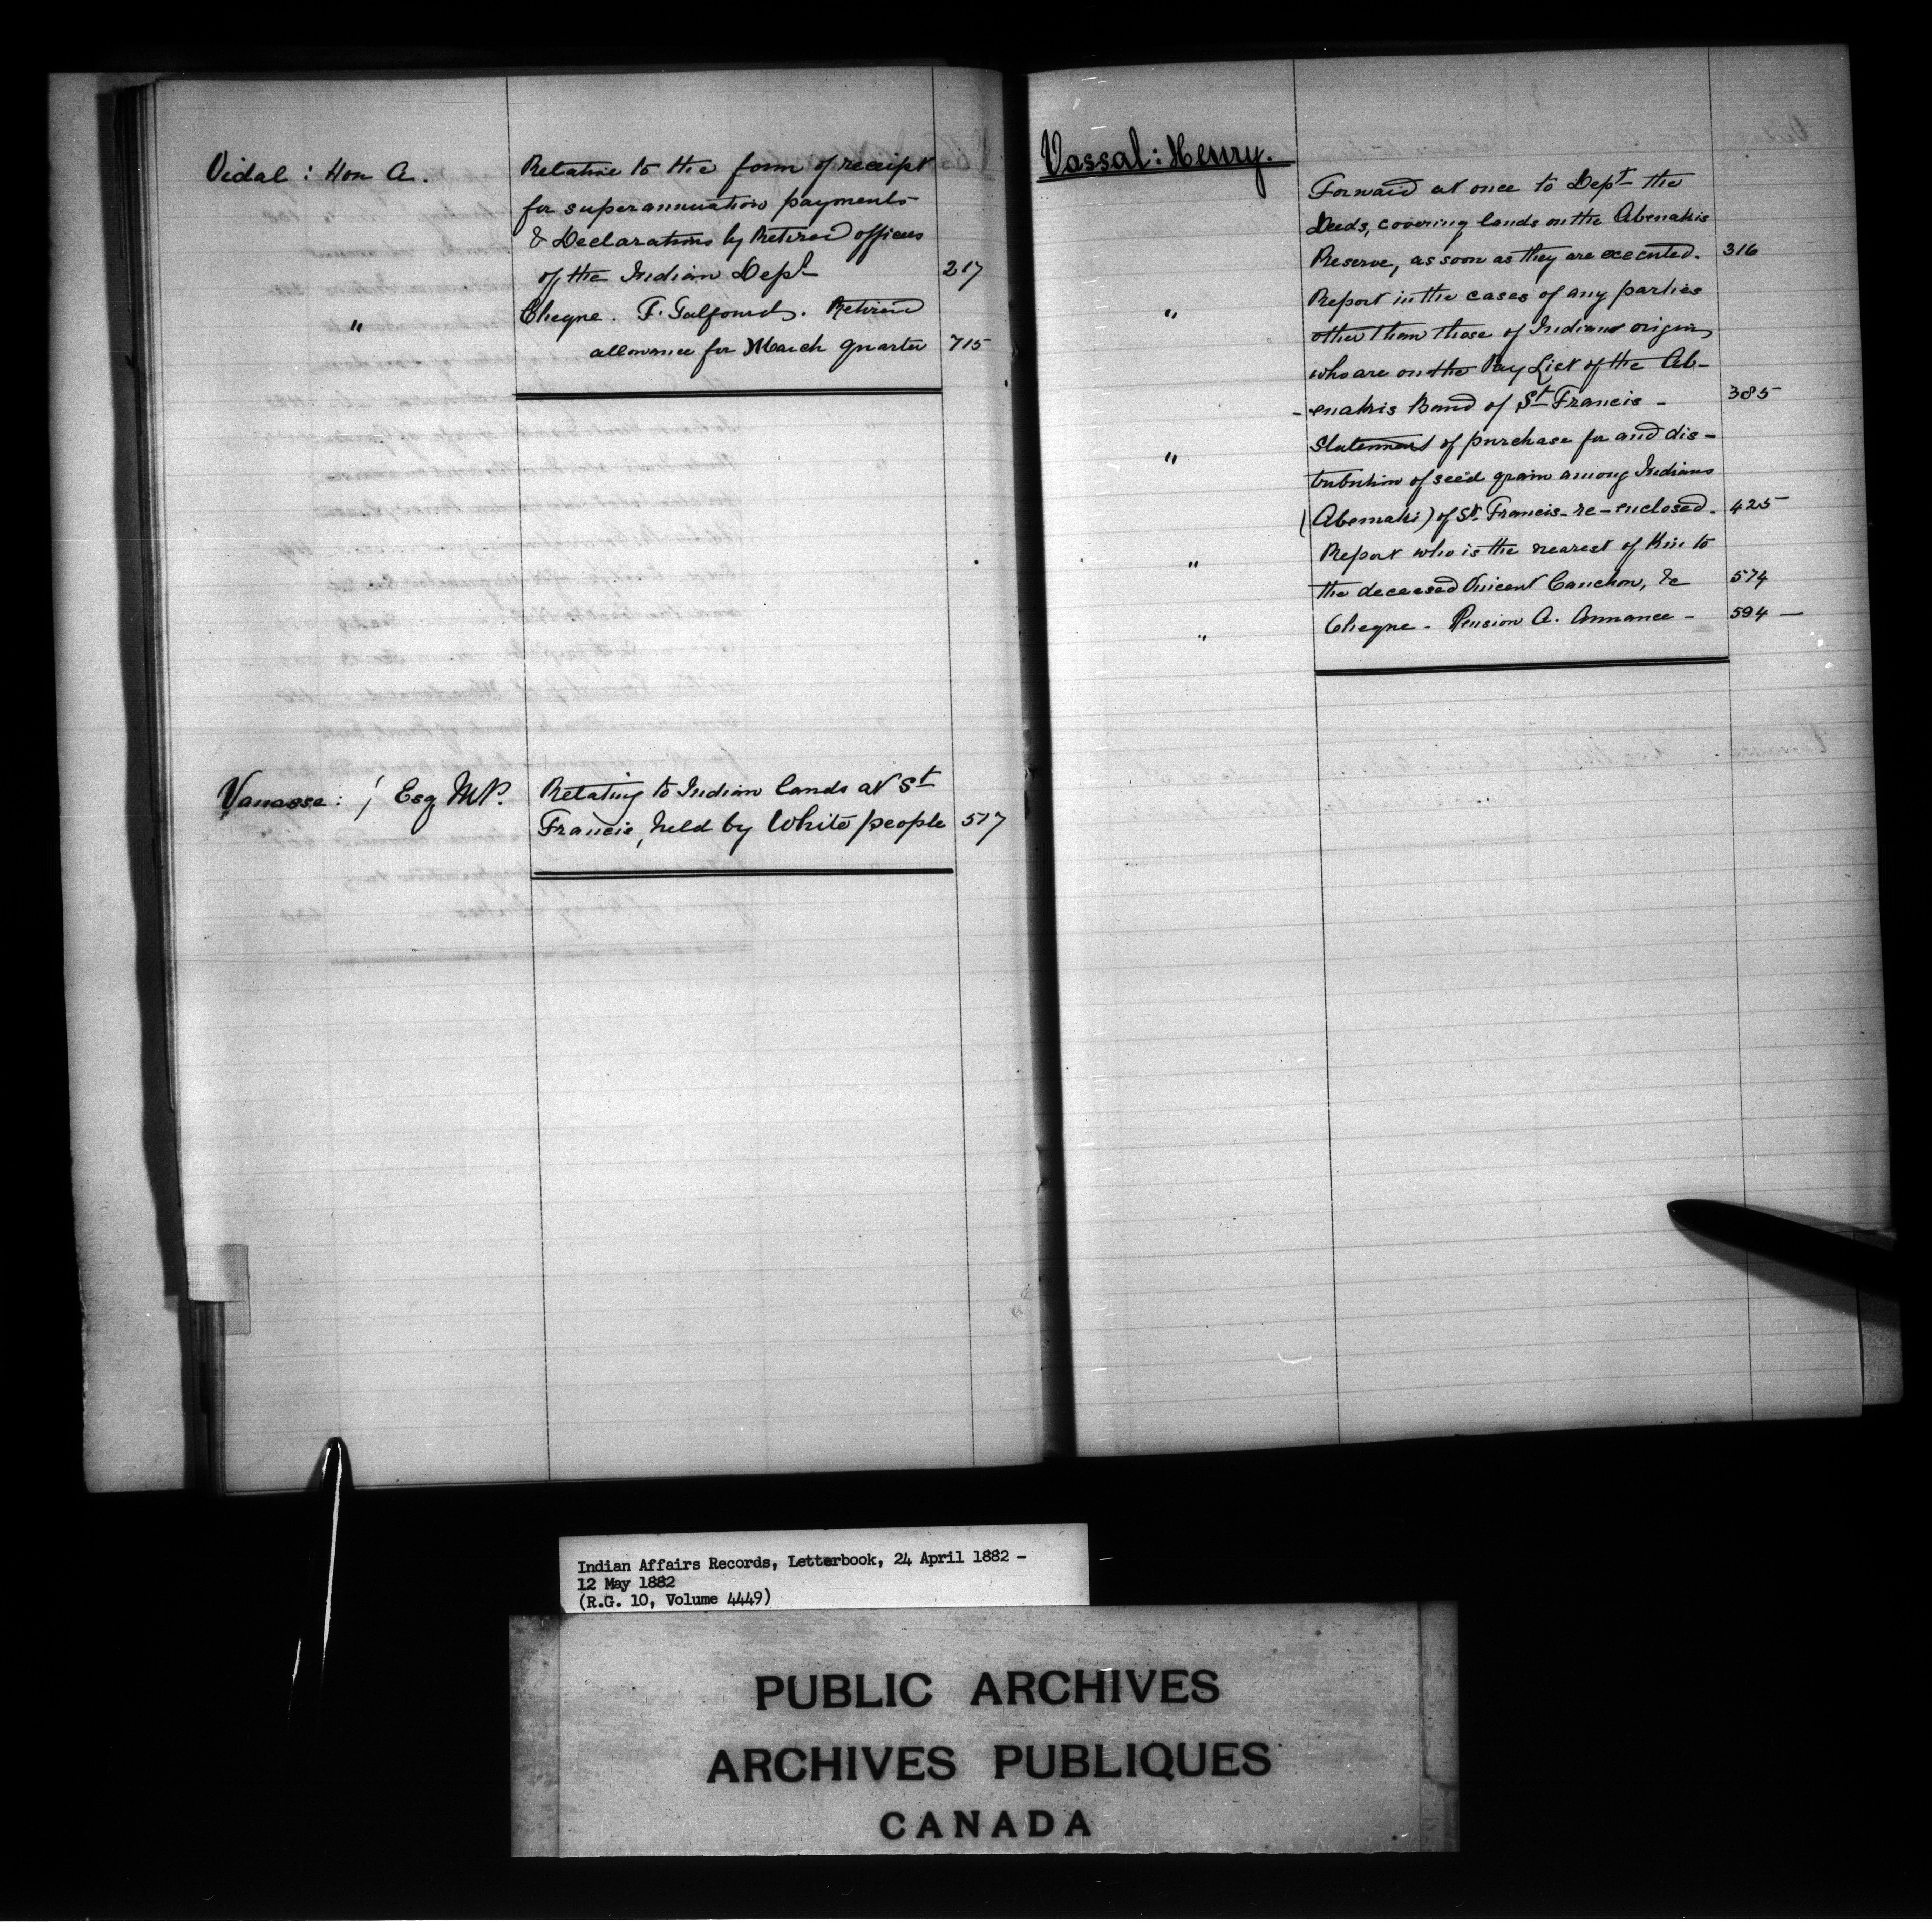 Vidal : Hon A.
Relative to the form of receipt
for superannuation payments
& Declarations by Retired officers
of the Indian Dept 217
" Cheque. F. Talfourds. Retired
allowance for March quarter 715
Vanasse : / Esq M.P.
Relating to Indian lands at St
Francis, held by White people 517
Vassal : Henry.
Forward at once to Dept the
Deeds, covering lands on the Abenakis
Reserve, as soon as they are executed. 316
" Report in the cases of any parties
other than those of Indian origin,
who are on the Pay List of the Ab-
-enakis Band of St Francis - 385
" Statement of purchase for and dis-
tribution of seed grain among Indians
(Abenaki) of St. Francis - re-enclosed. 425
" Report who is the nearest of Kin to
the deceased Vincent Cauchon, &c 574
" Cheque - Pension A. Annance - 594 —
Indian Affairs Records, Letterbook, 24 April 1882 -
12 May 1882
(R.G. 10, Volume 4449)
PUBLIC ARCHIVES
ARCHIVES PUBLIQUES
CANADA